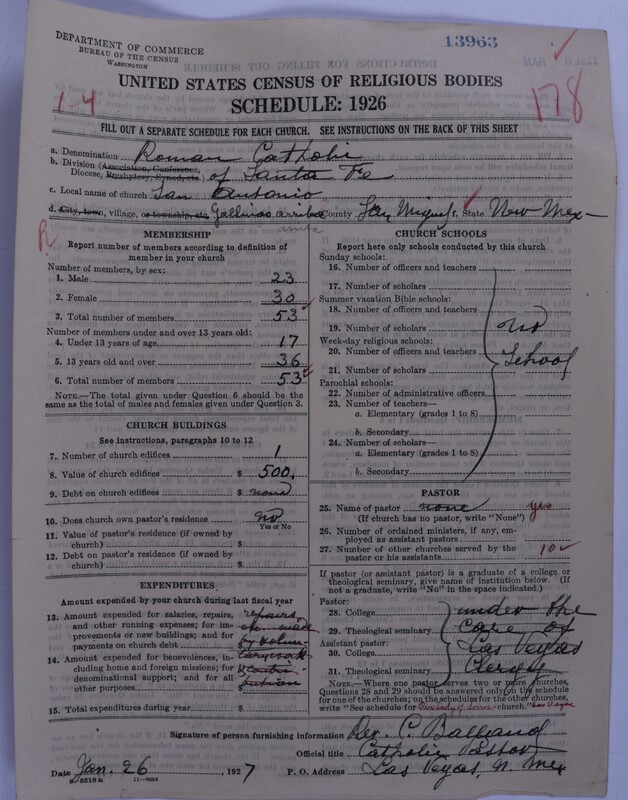 DEPARTMENT OF COMMERCE
BUREAU OF THE CENSUS
WASHINGTON
13963
UNITED STATES CENSUS OF RELIGIOUS BODIES
SCHEDULE: 1926
1-4
178
FILL OUT A SEPARATE SCHEDULE FOR EACH CHURCH. SEE INSTRUCTIONS ON THE BACK OF THIS SHEET
a. Denomination Roman Catholic
b. Division (Association, Conference, Diocese, Presbytery, Synod, etc.) of Santa Fe
c. Local name of church San Antonio
d. City, town, village, or township, etc. Gallinas arriba County San Miguel State New Mex
R
MEMBERSHIP
Report number of members according to definition of member in your church
Number of members, by sex:
1. Male 23
2. Female 30
3. Total number of members 53
Number of members under and over 13 years old:
4. Under 13 years of age 17
5. 13 years old and over 36
6. Total number of members 53
NOTE.—The total given under Question 6 should be the same as the total of males and females given under Question 3.
CHURCH BUILDINGS
See instructions, paragraphs 10 to 12
7. Number of church edifices 1
8. Value of church edifices $ 500.
9. Debt on church edifices $ none
10. Does church own pastor's residence no
Yes or No
11. Value of pastor's residence (if owned by church) $
12. Debt on pastor's residence (if owned by church) $
EXPENDITURES
Amount expended by your church during last fiscal year
13. Amount expended for salaries, repairs, and other running expenses; for improvements or new buildings; and for payments on church debt $ repairs etc. made by volun-
14. Amount expended for benevolences, including home and foreign missions; for denominational support; and for all other purposes $
15. Total expenditures during year $
CHURCH SCHOOLS
Report here only schools conducted by this church
Sunday schools:
16. Number of officers and teachers
17. Number of scholars
Summer vacation Bible schools:
18. Number of officers and teachers
19. Number of scholars
Week-day religious schools:
20. Number of officers and teachers
21. Number of scholars
no
School
Parochial schools:
22. Number of administrative officers
23. Number of teachers—
a. Elementary (grades 1 to 8)
b. Secondary
24. Number of scholars—
a. Elementary (grades 1 to 8)
b. Secondary
PASTOR
25. Name of pastor none yes
(If church has no pastor, write "None")
26. Number of ordained ministers, if any, employed as assistant pastors
27. Number of other churches served by the pastor or his assistants 10
If pastor (or assistant pastor) is a graduate of a college or theological seminary, give name of institution below. (If not a graduate, write "No" in the space indicated.)
Pastor:
28. College
29. Theological seminary
Assistant pastor:
30. College
31. Theological seminary
under the
care of
Las Vegas
Clergy
NOTE.—Where one pastor serves two or more churches, Questions 28 and 29 should be answered only on the schedule for one of the churches; on the schedules for the other churches, write "See schedule for church."
Signature of person furnishing information Rev. C. Balland
Official title Catholic Pastor
Date Jan. 26, 1927
P. O. Address Las Vegas, N. Mex
8-5518 a 11-9034